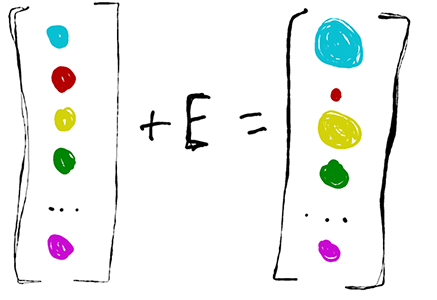 + E =
...
...